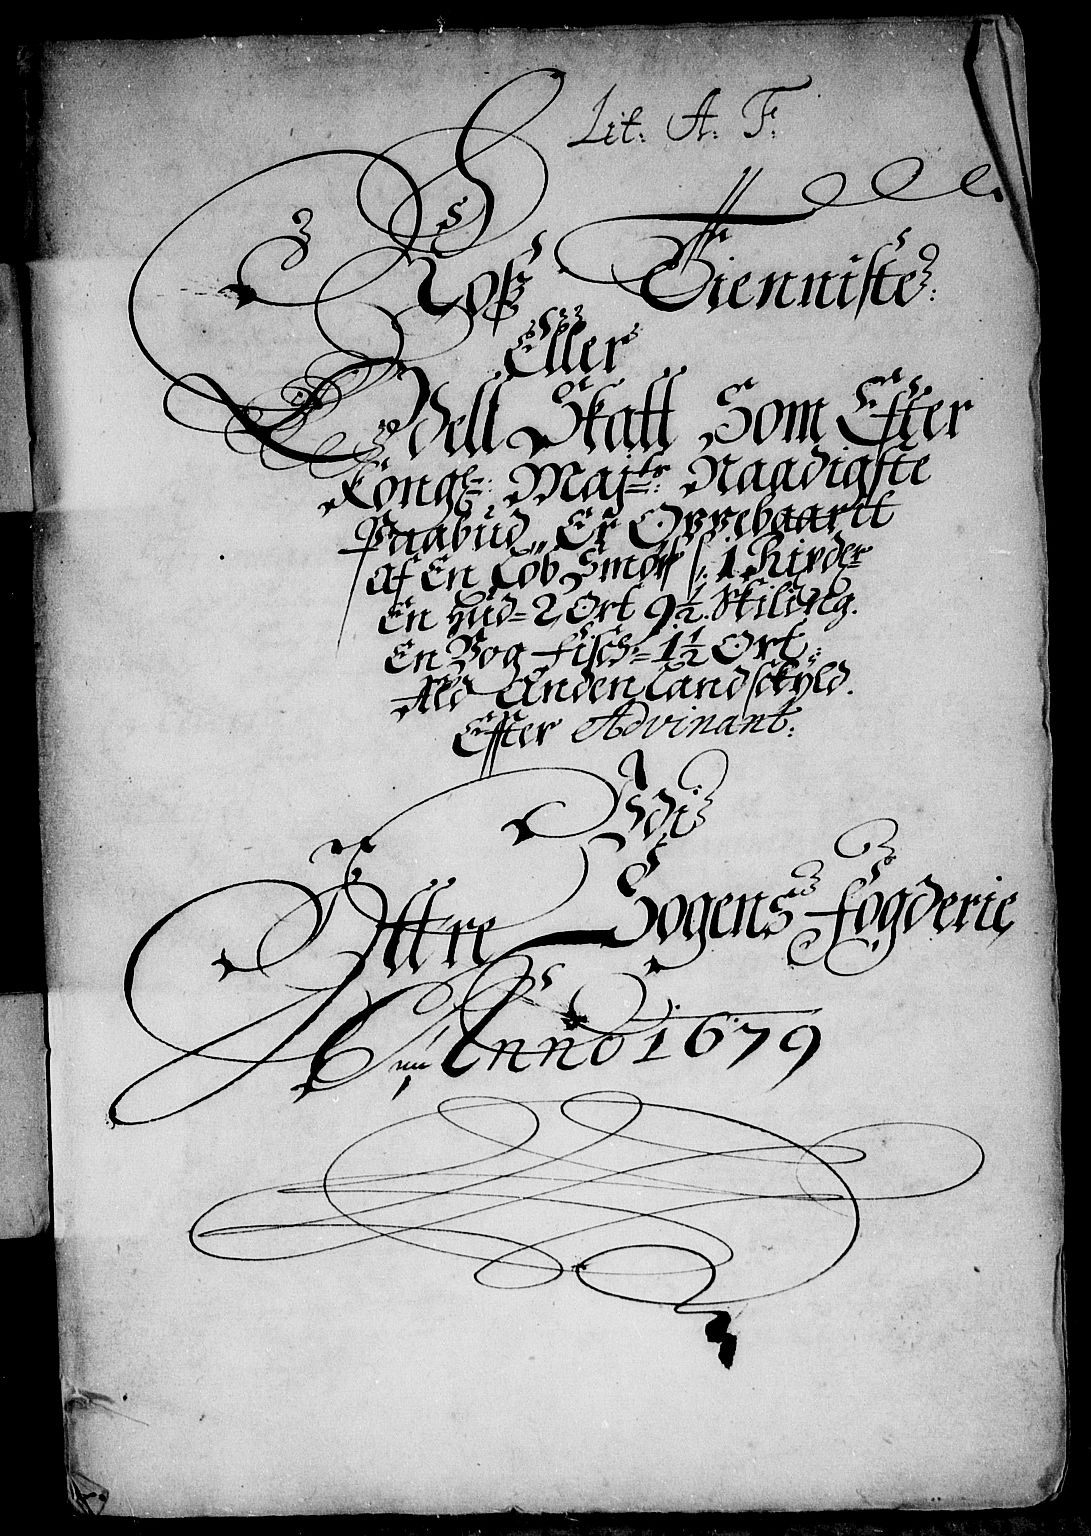 Lit: A: F:
Roß Tienniste:
Eller
Odell Skatt Som Efter
Kongl: Maj:ts Naadigste
Paabud, Er Oppebaaritt
af En Løb Smør /: 1 Rixdlr
En Hud = 2 Ort 9½ Skiling.
En Vog fisch = 1½ Ort:
Ald Anden Landsckyld.
Effter Advinant:
Udi
Ittre Sogens Fogderie
Anno 1679